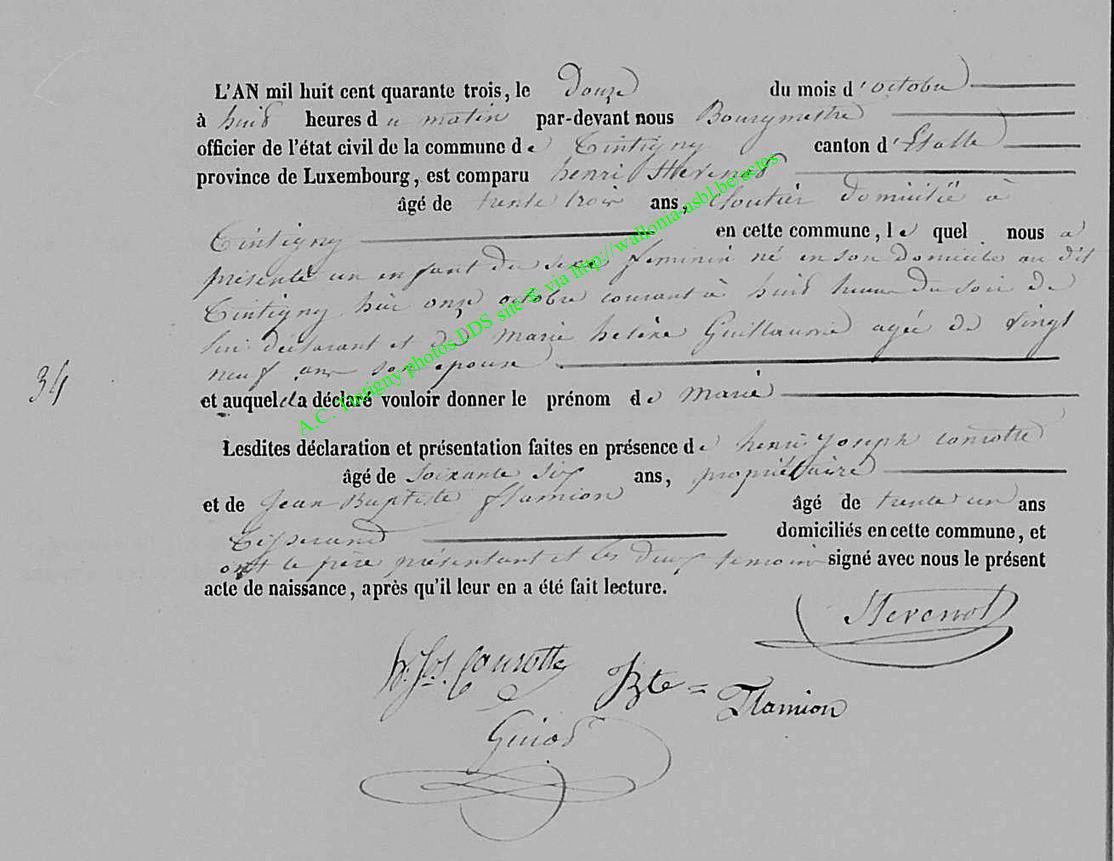 L'AN mil huit cent quarante trois, le Douze du mois d'octobre
à huit heures du matin par-devant nous Bourgmestre
officier de l'état civil de la commune de Tintigny canton d'Etalle
province de Luxembourg, est comparu henri Stévenot
âgé de trente trois ans, Cloutier domicilié à
Tintigny en cette commune, le quel nous a
présenté un enfant du sexe féminin né en son domicile au dit
Tintigny hier onze octobre courant à huit heures du soir de
lui déclarant et de Marie hélène Guillaume agée de vingt
neuf ans son épouse
34
et auquel il a déclaré vouloir donner le prénom de Marie
Lesdites déclaration et présentation faites en présence de henri Joseph
âgé de Soixante six ans, propriétaire
et de Jean Baptiste Flamion âgé de trente un ans
Tisserand domiciliés en cette commune, et
ont le père présentant et les deux temoins signé avec nous le présent
acte de naissance, après qu'il leur en a été fait lecture.
Stevenot
h. Jos. Bte = Flamion
A.C. Tintigny photos LDS site & via http://wallonia-asbl.be/actes